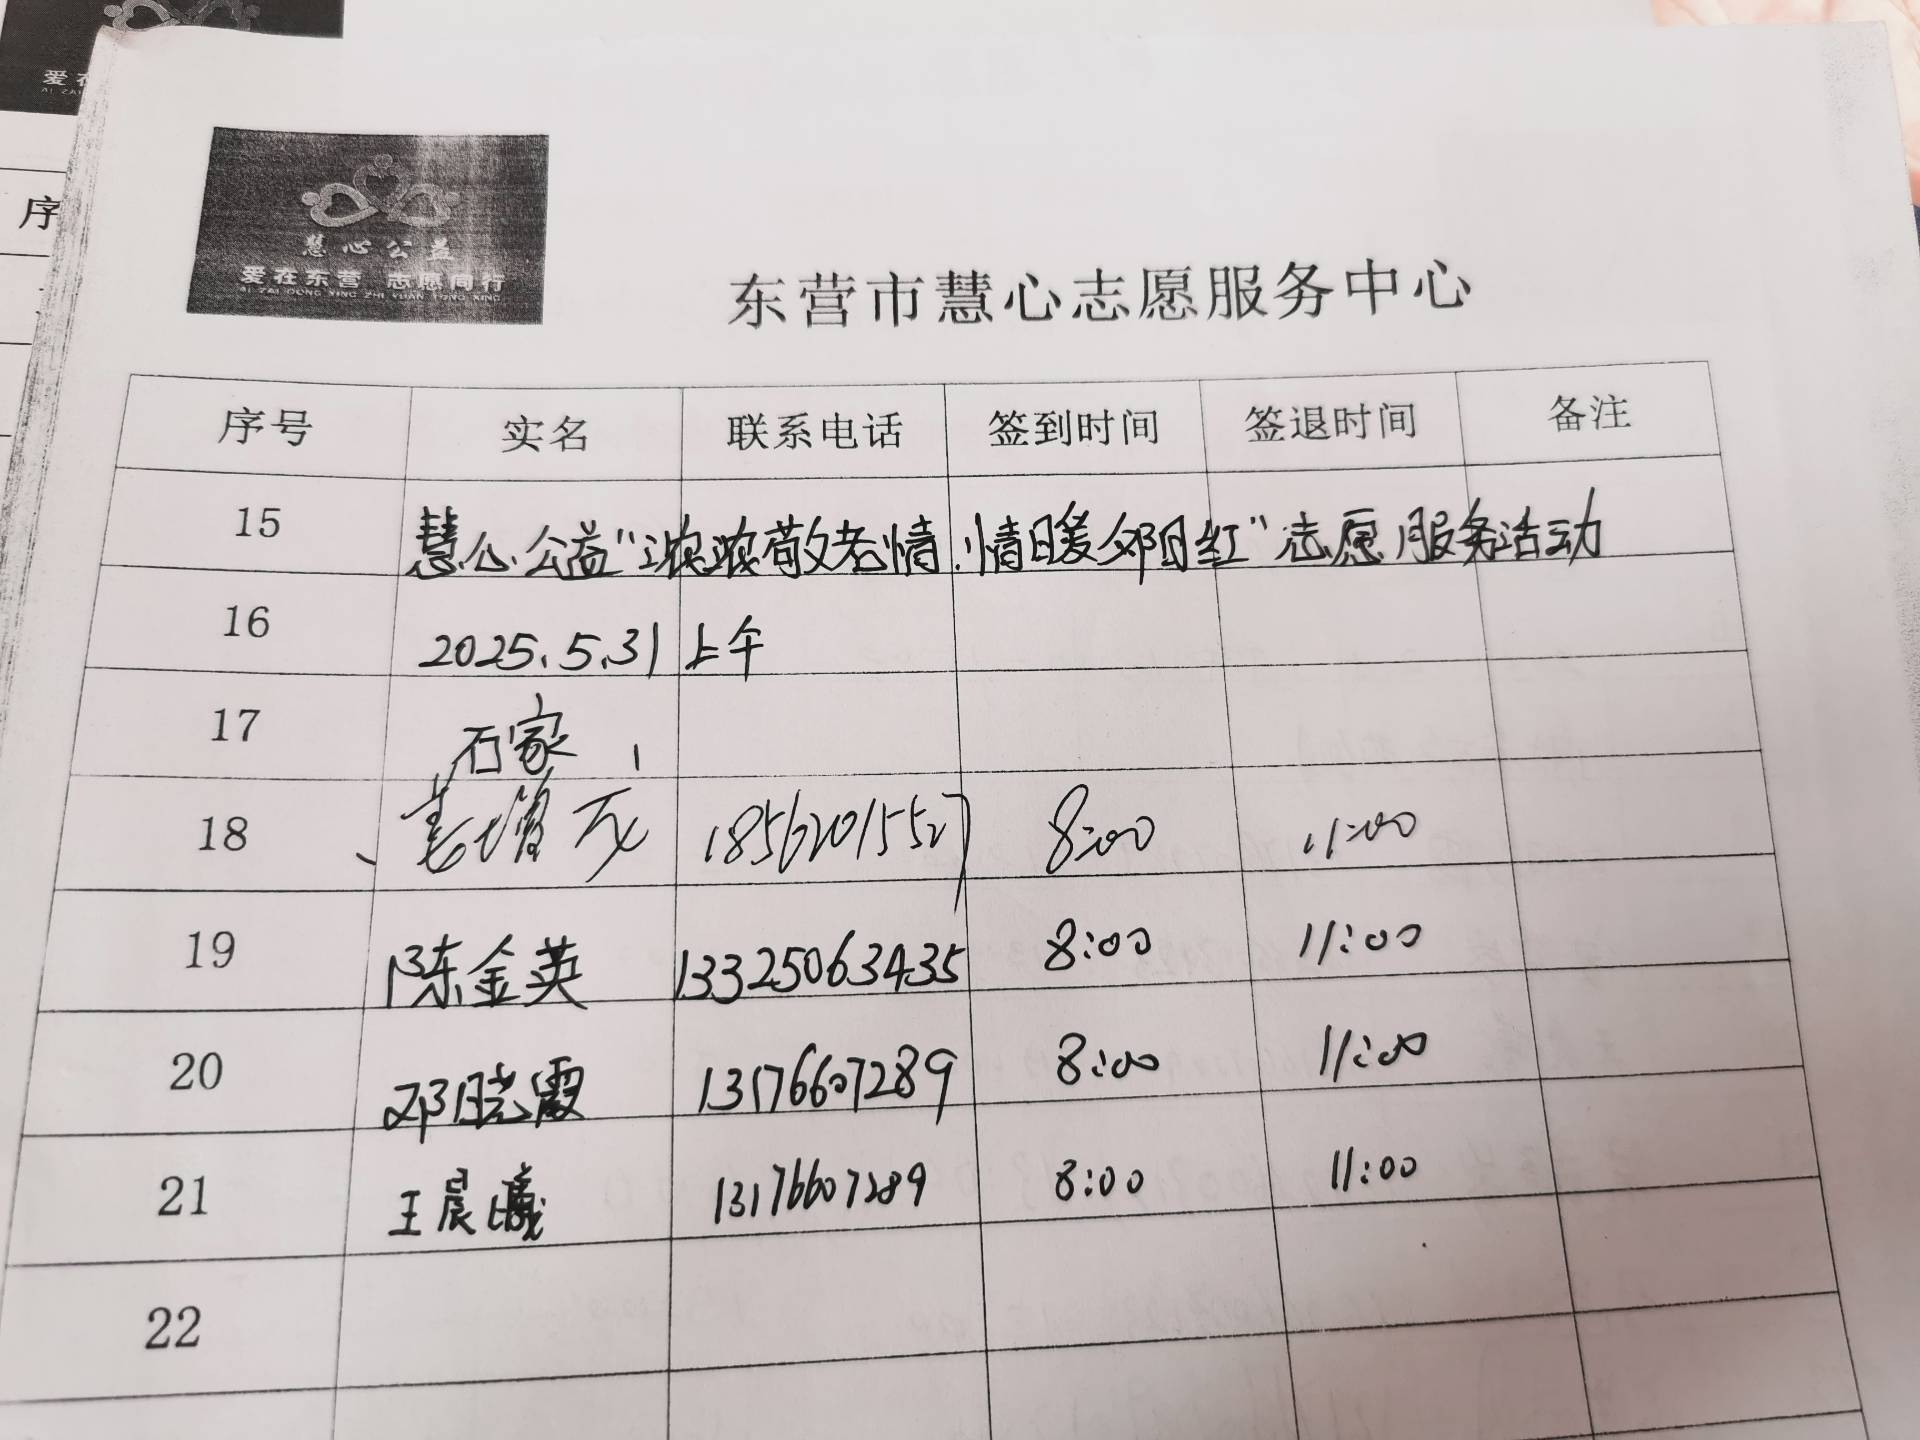 爱在
序
慧心公益
爱在东营 志愿同行
AI ZAI DONG YING ZHI YUAN TONG XING
东营市慧心志愿服务中心
序号 实名 联系电话 签到时间 签退时间 备注
15 慧心公益"浓浓敬老情.情暖夕阳红"志愿服务活动
16 2025.5.31 上午
17 石家
18 18562015527 8:00 11:00
19 陈金英 13325063435 8:00 11:00
20 邓晓霞 13176607289 8:00 11:00
21 王晨曦 13176607289 8:00 11:00
22